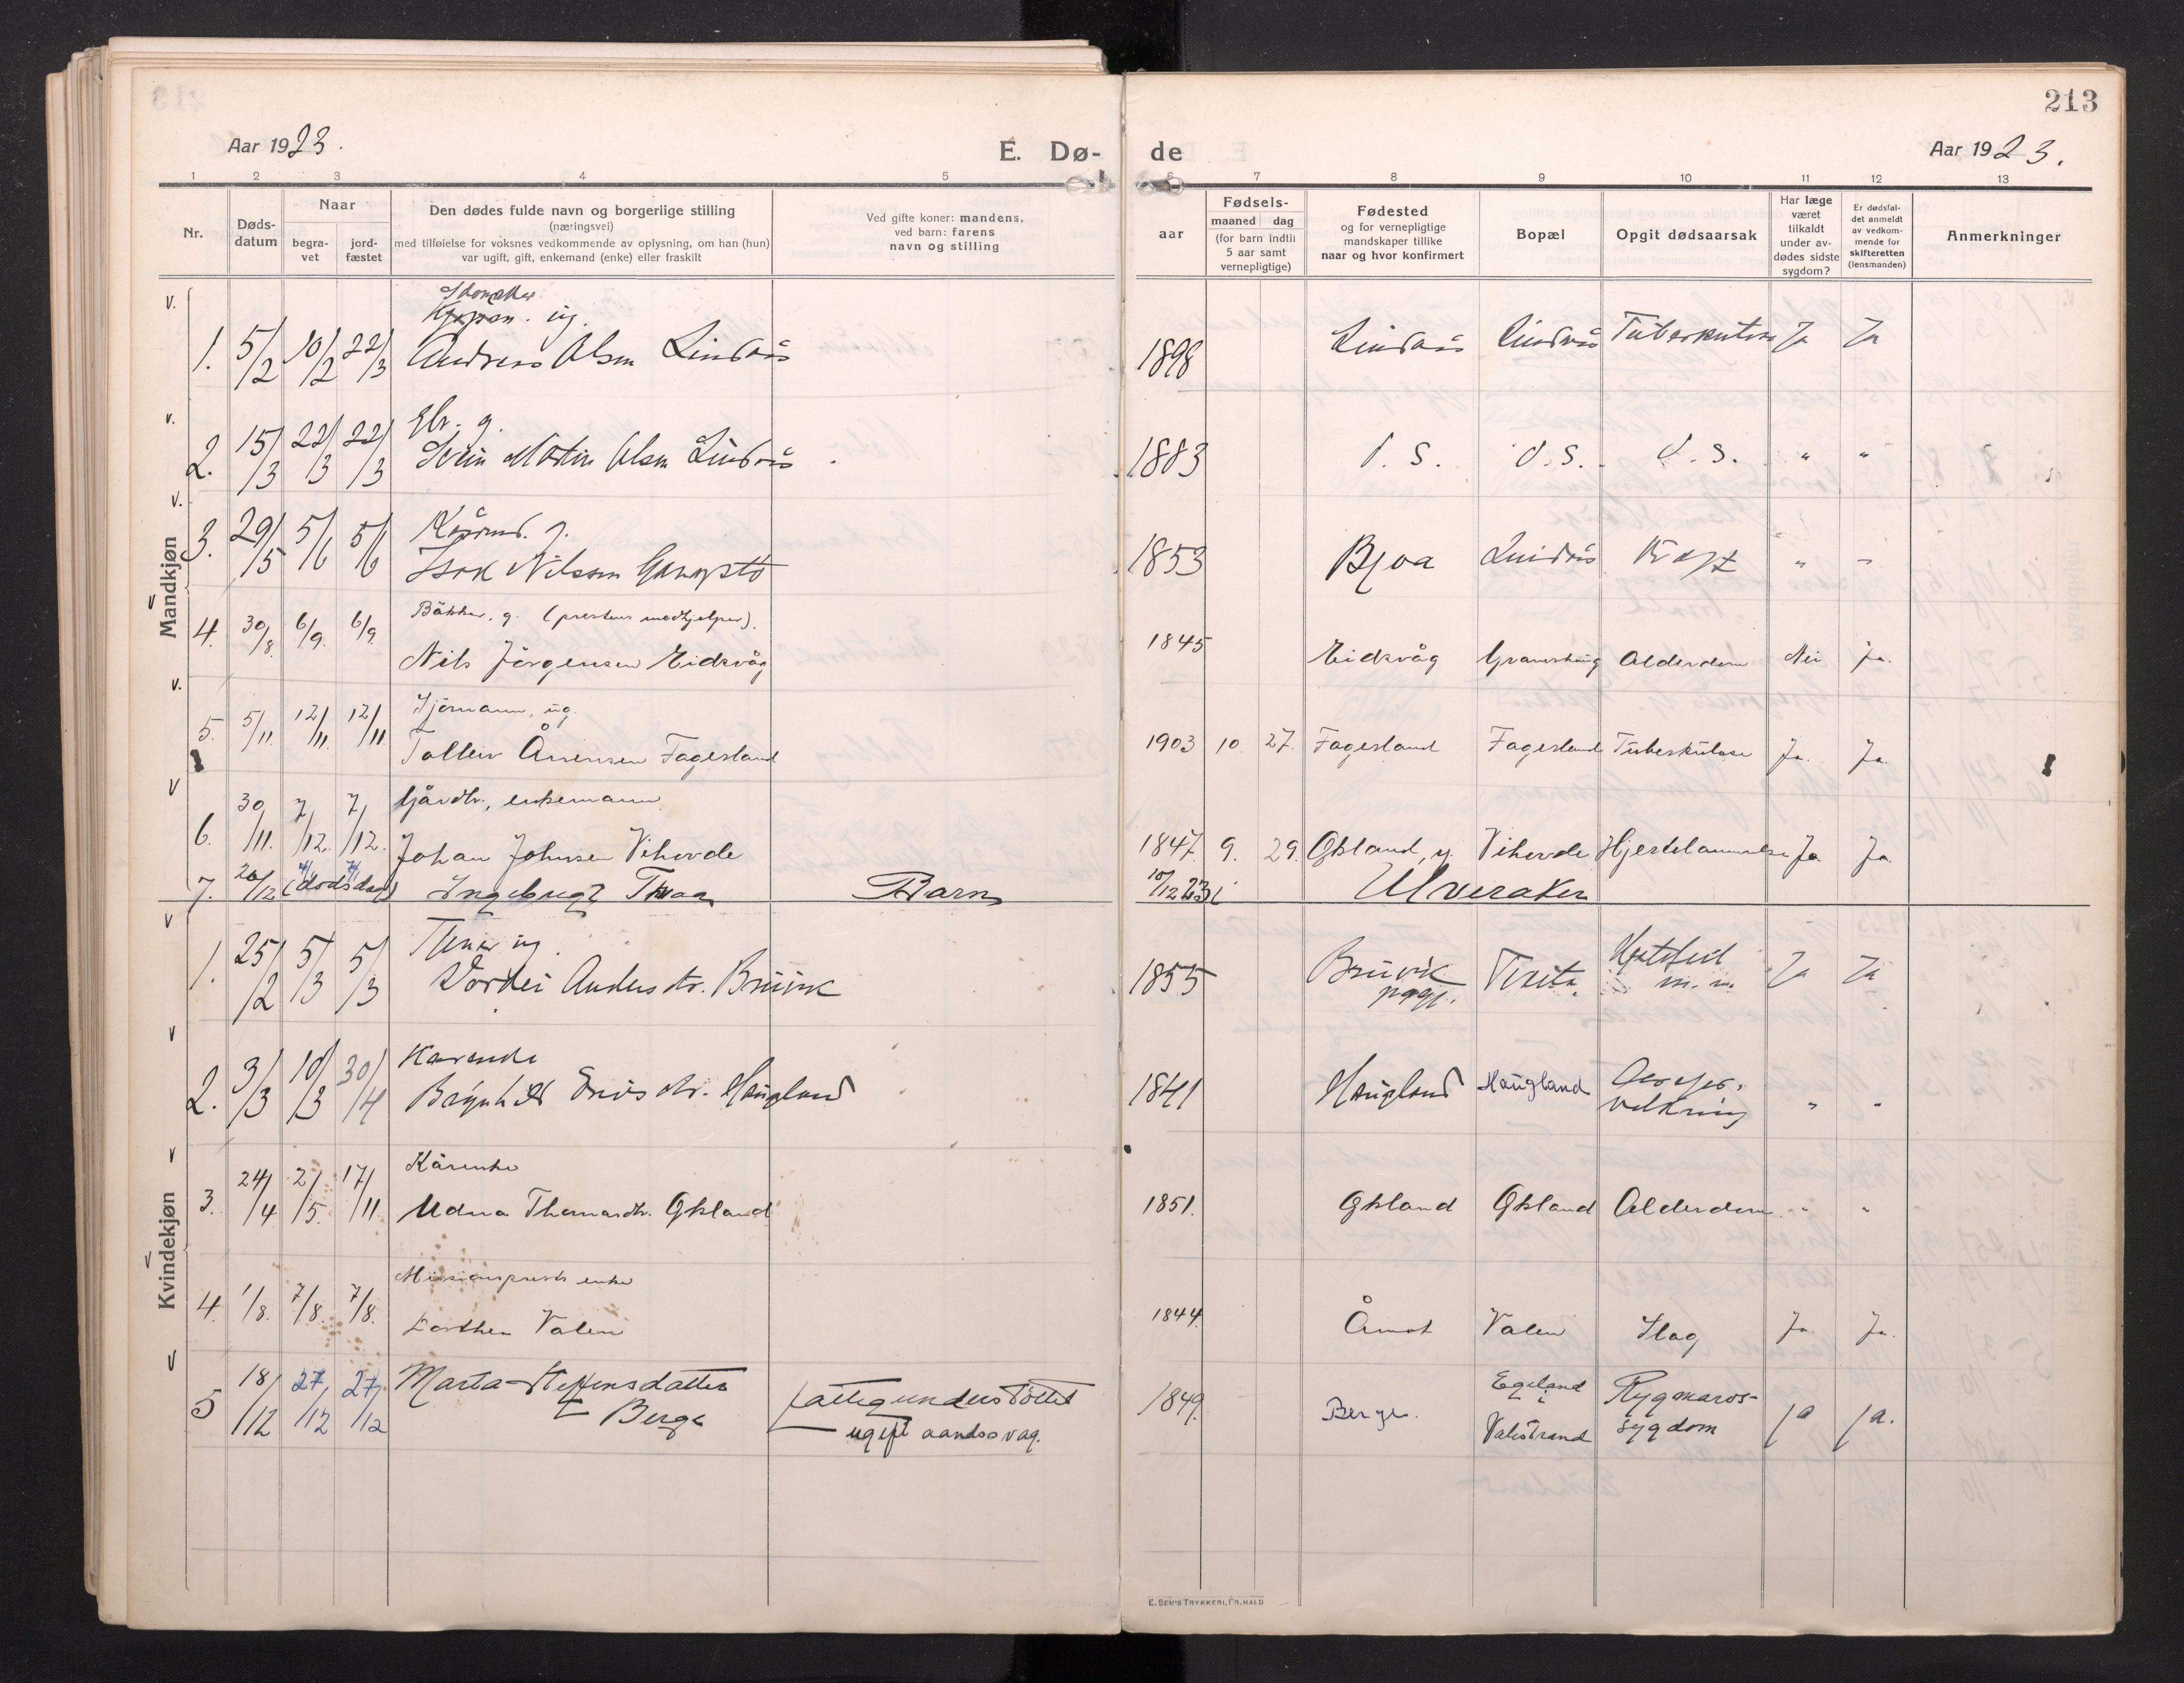 213
Aar 1923.
E. Dø-
de
Aar 1923.
1 2 3 4 5 6 7 8 9 10 11 12 13
Nr.
Døds-
datum
Naar
begra-
vet
jord-
fæstet
Den dødes fulde navn og borgerlige stilling
(næringsvei)
med tilføielse for voksnes vedkommende av oplysning, om han (hun)
var ugift, gift, enkemand (enke) eller fraskilt
Ved gifte koner: mandens,
ved barn: farens
navn og stilling
aar
Fødsels-
maaned dag
(for barn indtil
5 aar samt
vernepligtige)
Fødested
og for vernepligtige
mandskaper tillike
naar og hvor konfirmert
Bopæl
Opgit dødsaarsak
Har læge
været
tilkaldt
under av-
dødes sidste
sygdom?
Er dødsfal-
det anmeldt
av vedkom-
mende for
skifteretten
(lensmanden)
Anmerkninger
Mandkjøn
v. Skomaker ug.
1. 5/2 10/2 22/3 Andreas Olsen Lindaas 1898 Lindaas Lindaas Tuberkulose Ja Ja
v. Gbr. g.
2. 15/3 22/3 22/3 Svein Martin Olsen Lindaas 1883 d. s. d. s. d. s. " "
v. Kårmd. g.
3. 29/5 5/6 5/6 Isak Nilssen 1853 Bjoa Lindås " "
4. 30/8. 6/9. 6/9. Båkker, g. (prestens medhjelper).
Nils Jörgensen Eidsvåg 1845 Eidsvåg Alderdom Nei Ja.
v. Sjömann, ug.
5. 5/11. 12/11. 12/11. Tolleiv Ånensen Fagerland 1903 10. 27. Fagerland Fagerland Tuberkulose Ja. Ja.
v Gårdbr., enkemann
6. 30/11. 7/12. 7/12. Johan Johnsen Vihovde 1847. 9. 29. Ökland, y. Vihovde Hjertelammelse Ja Ja
7. 20/12 (dødsdag) Ingebrigt Barn 10/12 23 i Ulveraker
Kvindekjøn
v Tjener ug.
1. 25/2 5/3 5/3 Anders dtr. Bruvik 1855 Bruvik pgj. Tveita Hjertefeil m. m. Ja Ja
v Kårenke
2. 3/3 10/3 30/4 Brynhild dtr. Haugland 1841 Haugland Haugland " "
v Kårenke
3. 24/4 2/5. 17/11 Thomasdtr. Ökland 1851. Ökland Ökland Alderdom " "
Missionsprests enke
4. 1/8. 7/8. 7/8. Dorthea Valen 1844. Åmot Valen Slag Ja. Ja.
v Marta Steffensdatter
5 18/12 27/12 27/12 Berge fattigunderstöttet 1849. Berge. Egeland i Rygmarvs- ja ja.
ugift aandssvag. Valestrand sygdom
E. SEM'S TRYKKERI, FR.HALD